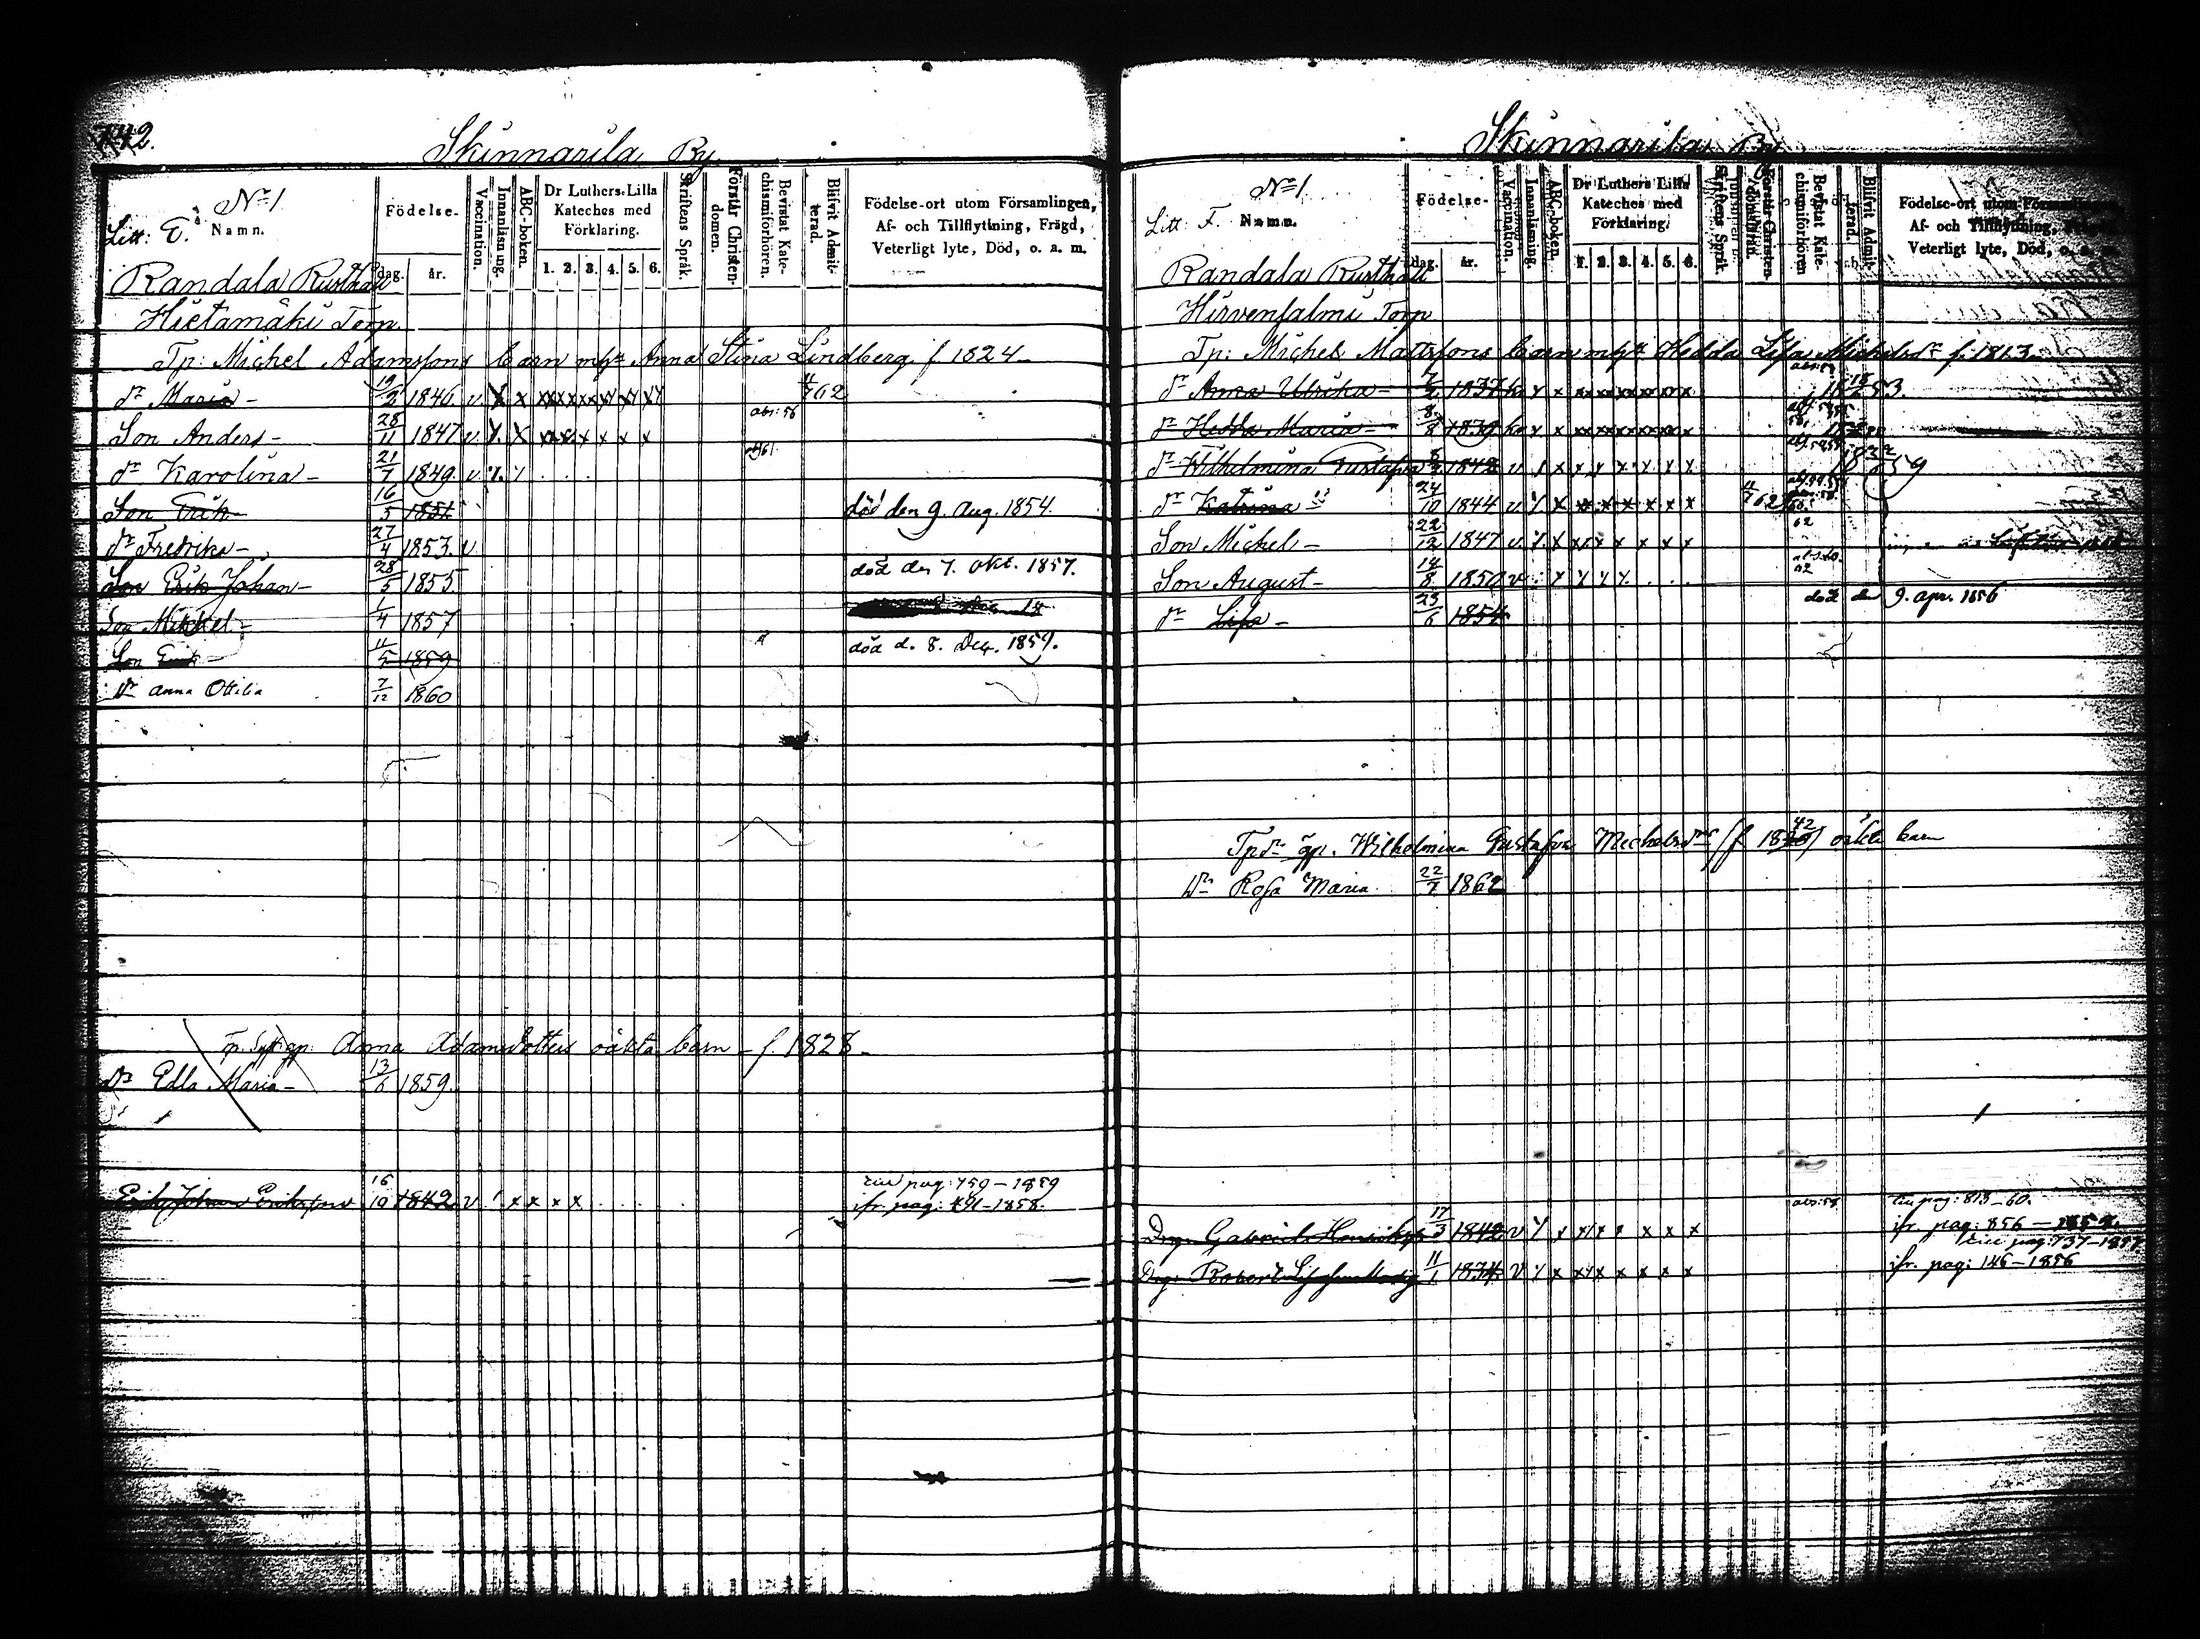 742.
Skinnarila By.
No 1
Litt: E.
Namn.
Födelse-
dag. år.
Vaccination.
Innanläsning.
ABC-boken.
Dr Luthers Lilla Kateches med Förklaring.
1. 2. 3. 4. 5. 6.
Skriftens Språk.
Förstår Christendomen.
Bevistat Katechismiförhören.
Blifvit Admitterad.
Födelse-ort utom Församlingen, Af- och Tillflyttning, Frägd, Veterligt lyte, Död, o. a. m.
Randala Rusthåll
Hietamäki Torp.
Tp: Michel Adamssons barn m Anna Stina Lindberg f 1824
dr Maria 19/2 1846 v x x 62
Son Anders 28/11 1847 v x x x x x x x abs: 56
dr Karolina 21/7 1849. v
Son Erik 16/5 1851 död den 9. Aug. 1854.
dr Fredrika 27/4 1853. v
Son Erik Johan 28/5 1855. död den 7. Okt. 1857.
Son Mikkel 1/4 1857
Son Erik 11/5 1859 död d. 8. Dec. 1859.
dr Anna Ottilia 7/12 1860
Anna Adamsdotters oäkta barn f. 1828
dr Edla Maria 13/6 1859.
Erik Johan Eriksson 16/10 1842 v x x x x
pag: 759-1859
ifr. pag: 1858.
Skinnarila By
No 1.
Litt: F.
Namn.
Födelse-
dag. år.
Vaccination.
Innanläsning.
ABC-boken.
Dr Luthers Lilla Kateches med Förklaring.
1. 2. 3. 4. 5. 6.
Skriftens Språk.
Förstår Christendomen.
Bevistat Katechismiförhören
Blifvit Admitterad.
Födelse-ort utom Församlingen, Af- och Tillflyttning, Veterligt lyte, Död, o. a. m.
Randala Rusthåll
Hirvensalmi Torp
Tp: Michel Mattssons barn m Hedda Lisa Michelsdr f. 1813
dr Anna Ulrika 1837 53.
dr Hedda Maria 1839
dr Wilhelmina Gustafva 1842 v 59
dr Katrina 24/10 1844 v 62
Son Michel 22/12 1847 v
Son August 14/8 1850 v
dr Lisa 23/6 1854 död den 9. apr. 1856
Tpdr Wilhelmina Gustafva Michelsdrs (f 1842) oäkta barn
dr Rosa Maria. 22/7 1862
Drg. Gabriel Henriksson 17/3 1842 v abs: 58
pag: 813-60.
ifr. pag: 856
pag: 737-1857
Drg. Robert 11/1 1834 v
ifr. pag: 146-1856